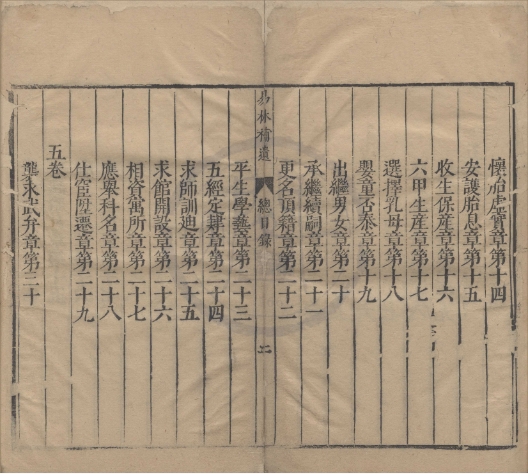 懷胎虛實章第十四
安護胎息章第十五
收生保産章第十六
六甲生産章第十七
選擇乳母章第十八
嬰童否泰章第十九
出繼男女章第二十
承繼續嗣章第二十一
更名頂籍章第二十二
易林補遺
總目錄
二
平生學藝章第二十三
五經定肄章第二十四
求師訓迪章第二十五
求館開設章第二十六
相資寓所章第二十七
應舉科名章第二十八
仕宦陞遷章第二十九
五卷
襲求武弁章第三十